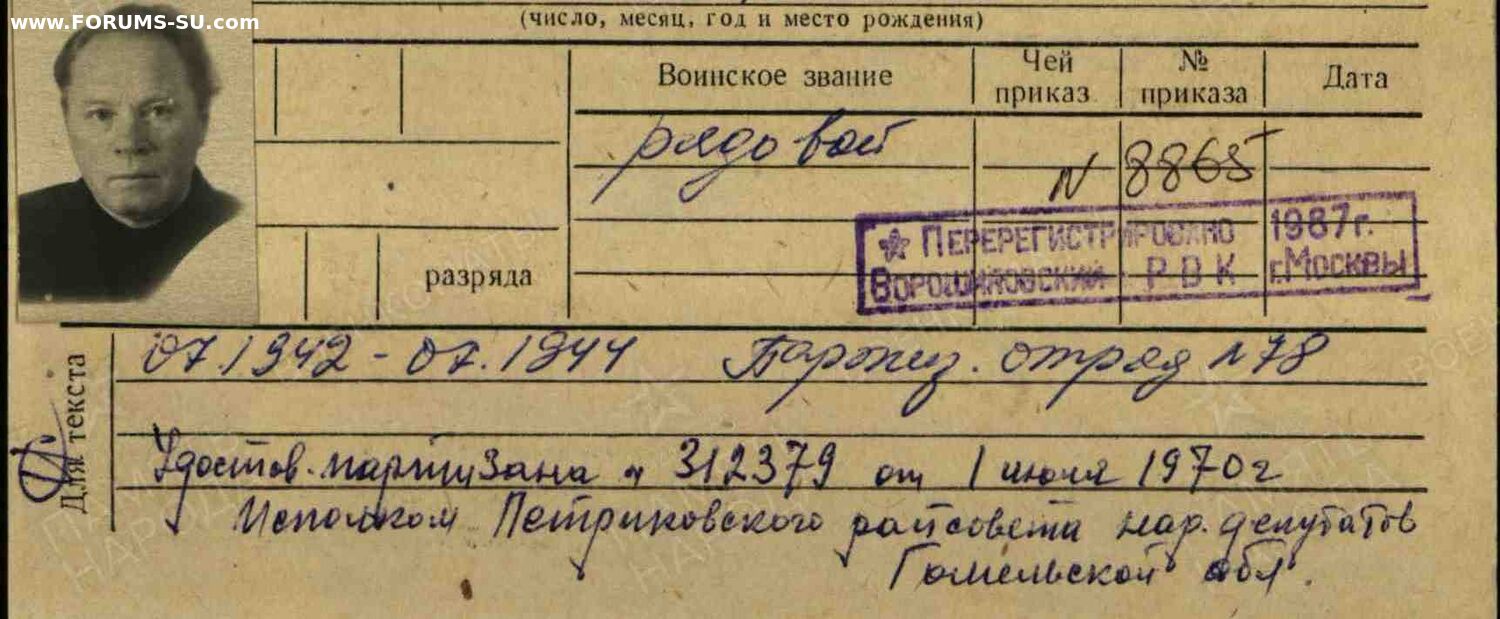 www.FORUMS-SU.com
(число, месяц, год и место рождения)
Воинское звание
Чей приказ
№ приказа
Дата
рядовой
N 8865
разряда
Перерегистрировано 1987г.
Ворошиловский РВК г.Москвы
Для текста
07.1942 - 07.1944 Партиз. отряд №78
Удостов. партизана № 312379 от 1 июля 1970г
Исполком Петриковского райсовета нар. депутатов
Гомельской обл.